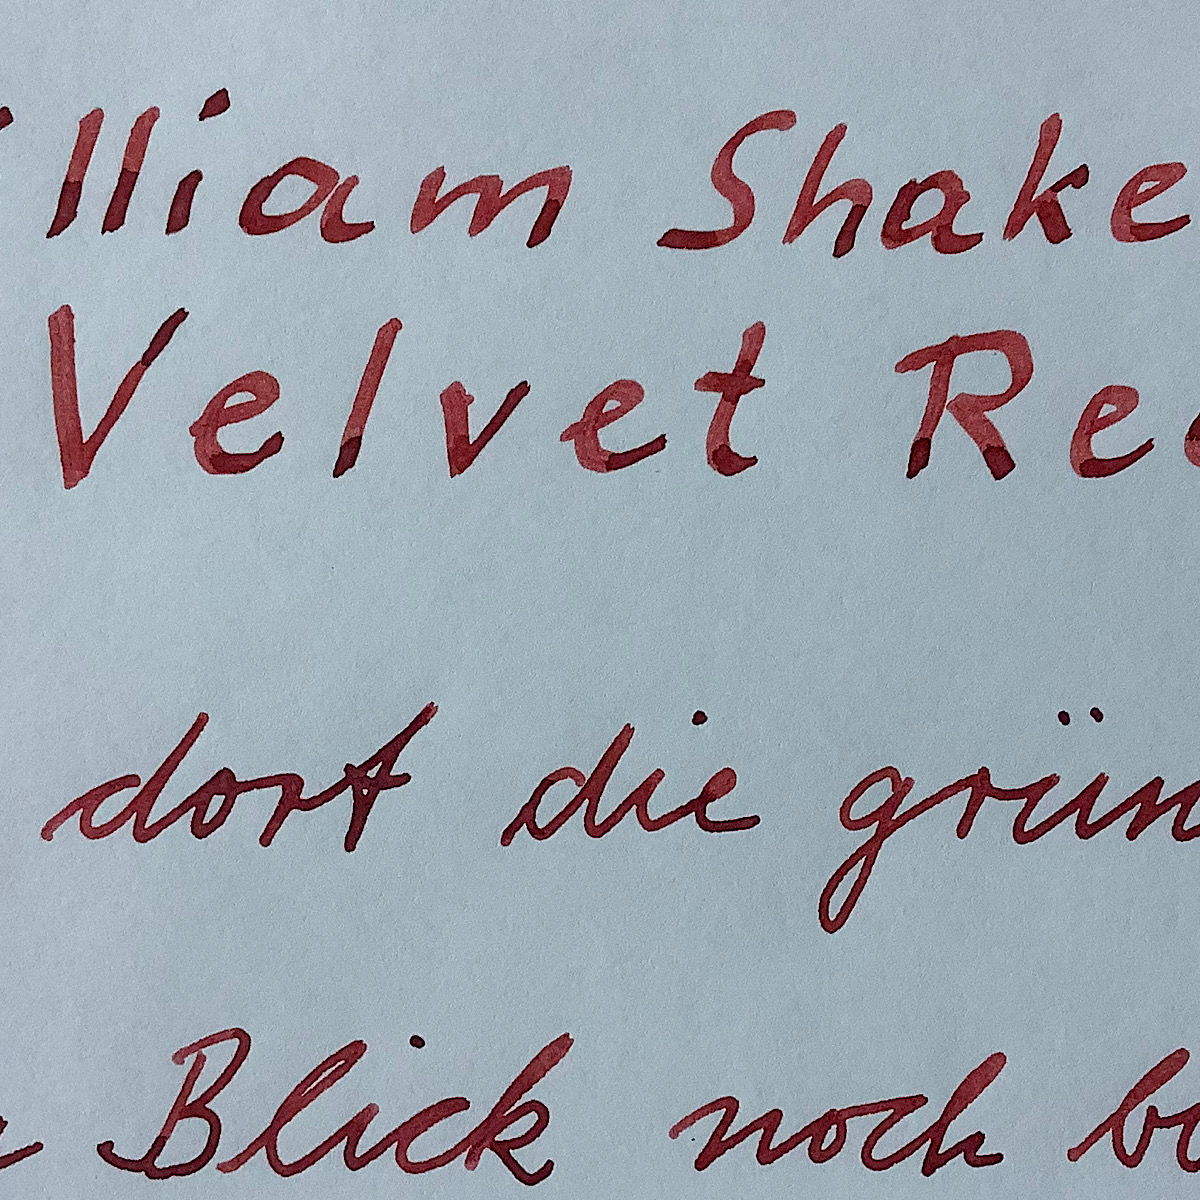 illiam Shake
Velvet Red
dort die grün
Blick noch